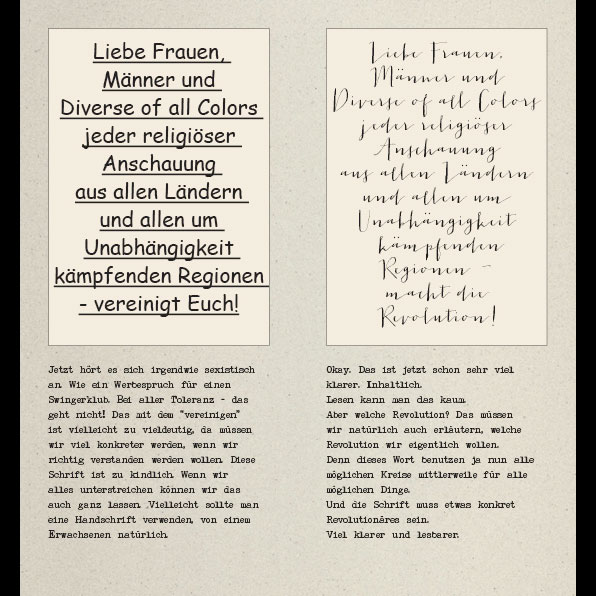 Liebe Frauen,
Männer und
Diverse of all Colors
jeder religiöser
Anschauung
aus allen Ländern
und allen um
Unabhängigkeit
kämpfenden Regionen
- vereinigt Euch!
Jetzt hört es sich irgendwie sexistisch
an. Wie ein Werbespruch für einen
Swingerklub. Bei aller Toleranz - das
geht nicht! Das mit dem "vereinigen"
ist vielleicht zu vieldeutig, da müssen
wir viel konkreter werden, wenn wir
richtig verstanden werden wollen. Diese
Schrift ist zu kindlich. Wenn wir
alles unterstreichen können wir das
auch ganz lassen. Vielleicht sollte man
eine Handschrift verwenden, von einem
Erwachsenen natürlich.
Liebe Frauen,
Männer und
Diverse of all Colors
jeder religiöser
Anschauung
aus allen Ländern
und allen um
Unabhängigkeit
kämpfenden
Regionen -
macht die
Revolution!
Okay. Das ist jetzt schon sehr viel
klarer. Inhaltlich.
Lesen kann man das kaum.
Aber welche Revolution? Das müssen
wir natürlich auch erläutern, welche
Revolution wir eigentlich wollen.
Denn dieses Wort benutzen ja nun alle
möglichen Kreise mittlerweile für alle
möglichen Dinge.
Und die Schrift muss etwas konkret
Revolutionäres sein.
Viel klarer und lesbarer.